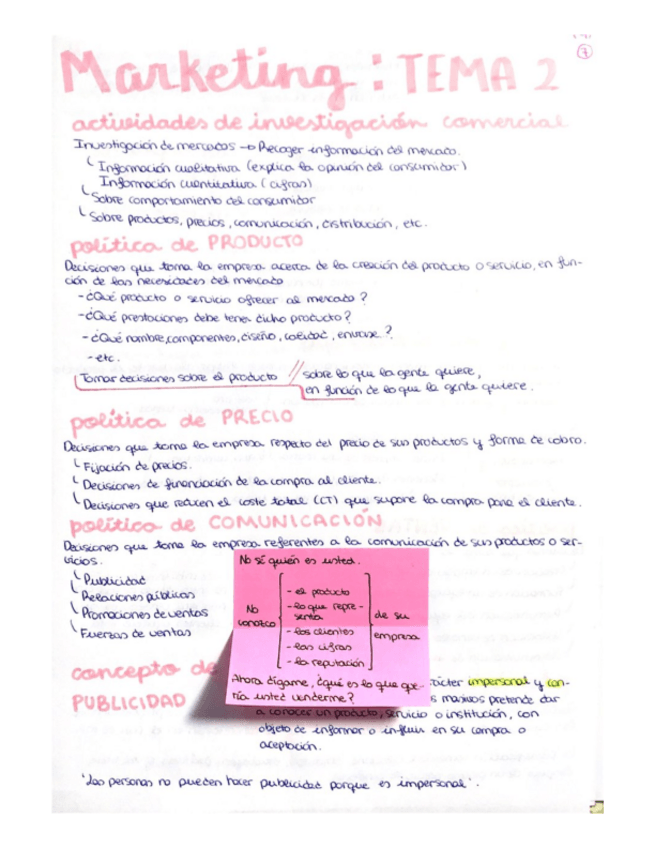 7
Marketing: TEMA 2
actividades de investigación comercial
Investigación de mercados → Recoger información del mercado.
Información cualitativa (explica la opinión del consumidor)
Información cuantitativa (cifras)
Sobre comportamiento del consumidor
Sobre productos, precios, comunicación, distribución, etc.
política de PRODUCTO
Decisiones que toma la empresa acerca de la creación del producto o servicio, en fun-
ción de las necesidades del mercado
- ¿Qué producto o servicio ofrecer al mercado?
- ¿Qué prestaciones debe tener dicho producto?
- ¿Qué nombre, componentes, diseño, calidad, envase..?
- etc.
Tomar decisiones sobre el producto // sobre lo que la gente quiere,
en función de lo que la gente quiere.
política de PRECIO
Decisiones que toma la empresa respecto del precio de sus productos y forma de cobro.
Fijación de precios.
Decisiones de financiación de la compra al cliente.
Decisiones que reducen el coste total (CT) que supone la compra para el cliente.
política de COMUNICACIÓN
Decisiones que toma la empresa referentes a la comunicación de sus productos o ser-
vicios.
Publicidad
Relaciones públicas
Promociones de ventas
Fuerzas de ventas
No sé quién es usted.
No conozco
- el producto
- lo que repre-
senta
- los clientes
- las cifras
- la reputación
de su
empresa
Ahora dígame, ¿qué es lo que que-
ría usted venderme?
concepto de
PUBLICIDAD
rácter impersonal y con-
s masivos pretende dar
a conocer un producto, servicio o institución, con
objeto de informar o influir en su compra o
aceptación.
'Las personas no pueden hacer publicidad porque es impersonal'.